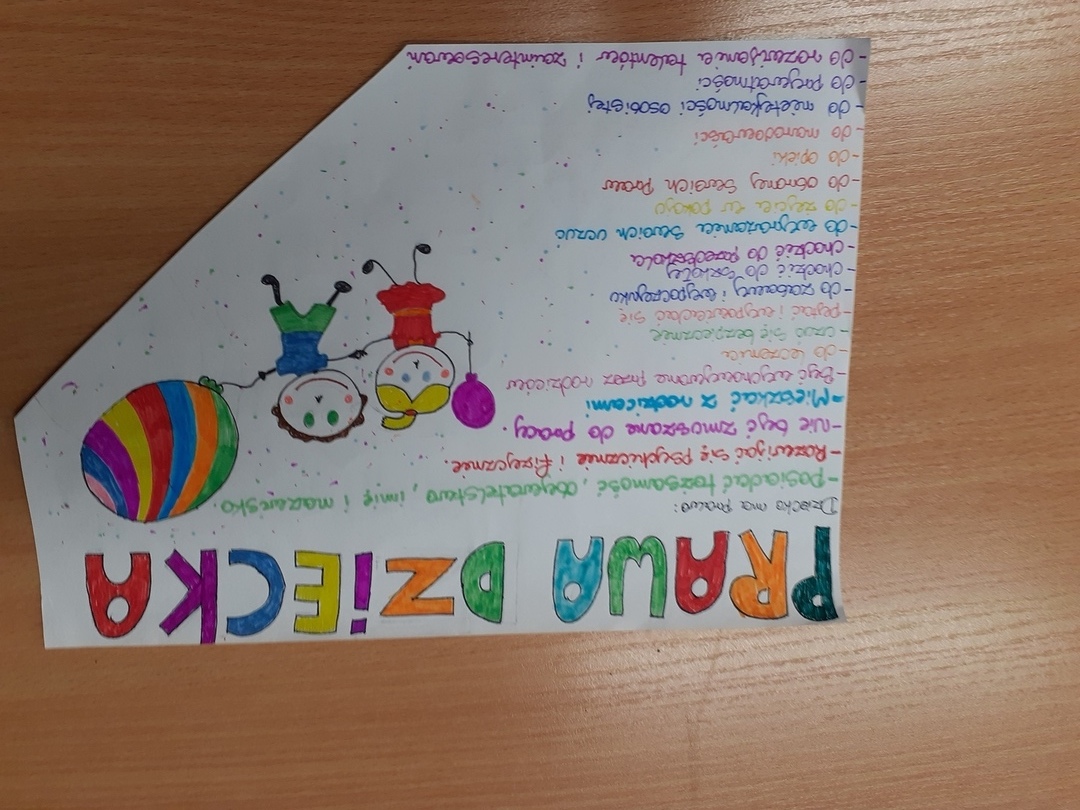 PRAWA DZIECKA
Dziecko ma prawo:
- Posiadać tożsamość, obywatelstwo, imię i nazwisko.
- Rozwijać się psychicznie i fizycznie.
- Nie być zmuszane do pracy.
- Mieszkać z rodzicami
- Być wychowywane przez rodziców
- do leczenia
- czuć się bezpiecznie
- pytać i wypowiadać się
- do zabawy i wypoczynku
- chodzić do szkoły
- chodzić do przedszkola
- do wyrażania swoich uczuć
- do życia w pokoju
- do obrony swoich praw
- do opieki
- do narodowości
- do nietykalności osobistej
- do prywatności
- do rozwijania talentów i zainteresowań